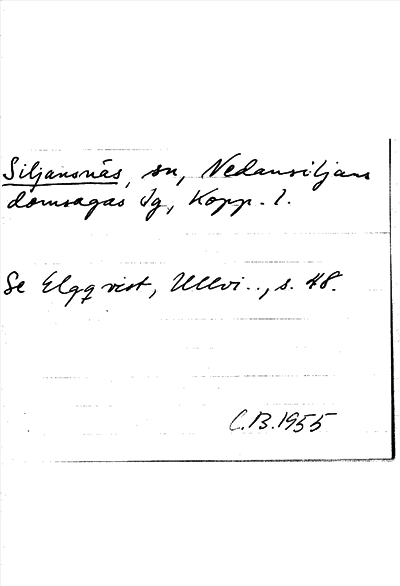 Siljansnäs, sn, Nedansiljans
domsagas tg, Kopp. l.
Se Elgqvist, Ullvi.., s. 48.
C.B.1955